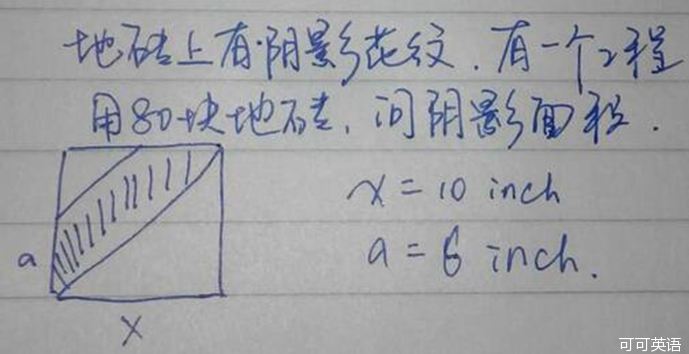 地砖上有阴影花纹.有一个工程
用80块地砖,问阴影面积.
x = 10 inch
a = 6 inch.
a
x
可可英语